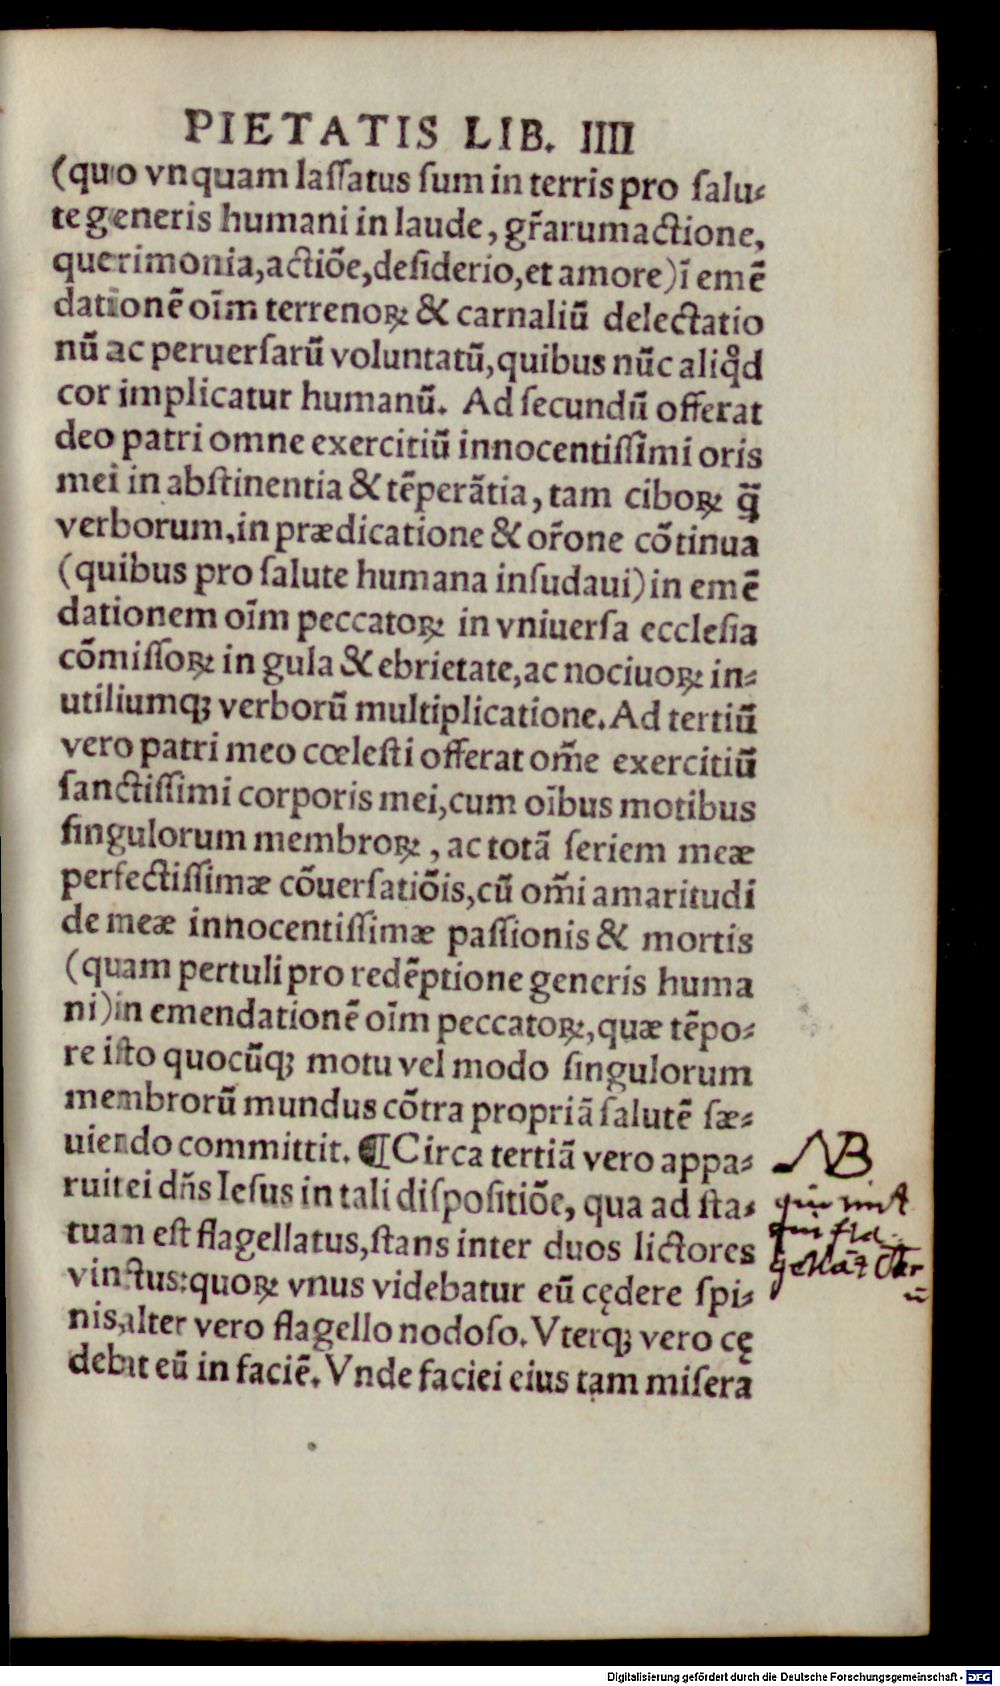 PIETATIS LIB. IIII
(quo vnquam laſſatus ſum in terris pro ſalu-
te generis humani in laude, gr̃arumactione,
querimonia, actiõe, deſiderio, et amore) ĩ emẽ
dationẽ oĩm terrenoꝝ & carnaliũ delectatio
nũ ac peruerſarũ voluntatũ, quibus nũc aliqͥd
cor implicatur humanũ. Ad ſecundũ offerat
deo patri omne exercitiũ innocentiſſimi oris
mei in abſtinentia & tẽperãtia, tam ciboꝝ q̃
verborum, in prædicatione & or̃one cõtinua
(quibus pro ſalute humana inſudaui) in emẽ
dationem oĩm peccatoꝝ in vniuerſa eccleſia
cõmiſſoꝝ in gula & ebrietate, ac nociuoꝝ in-
utiliumq; verborũ multiplicatione. Ad tertiũ
vero patri meo cœleſti offerat om̃e exercitiũ
ſanctiſſimi corporis mei, cum oĩbus motibus
ſingulorum membroꝝ, ac totã ſeriem meæ
perfectiſſimæ cõuerſatiõis, cũ om̃i amaritudi
de meæ innocentiſſimæ paſſionis & mortis
(quam pertuli pro redẽptione generis huma
ni) in emendationẽ oĩm peccatoꝝ, quæ tẽpo-
re iſto quocũq; motu vel modo ſingulorum
membrorũ mundus cõtra propriã ſalutẽ ſæ-
uiendo committit. ¶ Circa tertiã vero appa-
ruit ei dñs Ieſus in tali diſpoſitiõe, qua ad ſta-
tuam eſt flagellatus, ſtans inter duos lictores
vinctus: quoꝝ vnus videbatur eũ cędere ſpi-
nis, alter vero flagello nodoſo. Vterq; vero cę
debat eũ in faciẽ. Vnde faciei eius tam miſera
NB
Digitalisierung gefördert durch die Deutsche Forschungsgemeinschaft - DFG